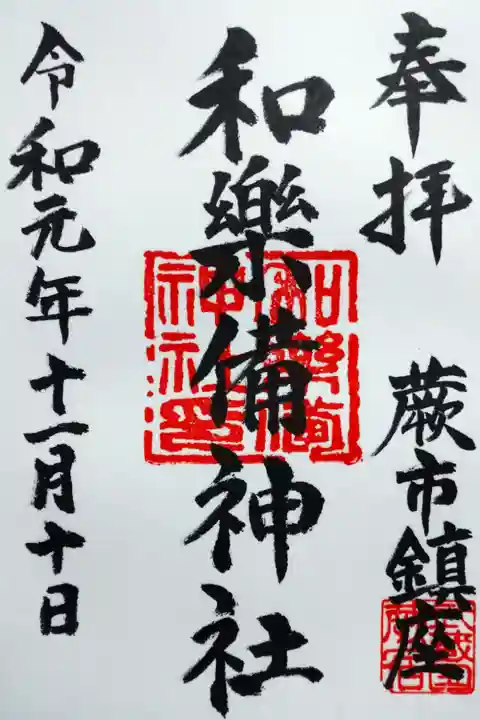 奉拝
蕨市鎮座
和樂備神社
令和元年十一月十日